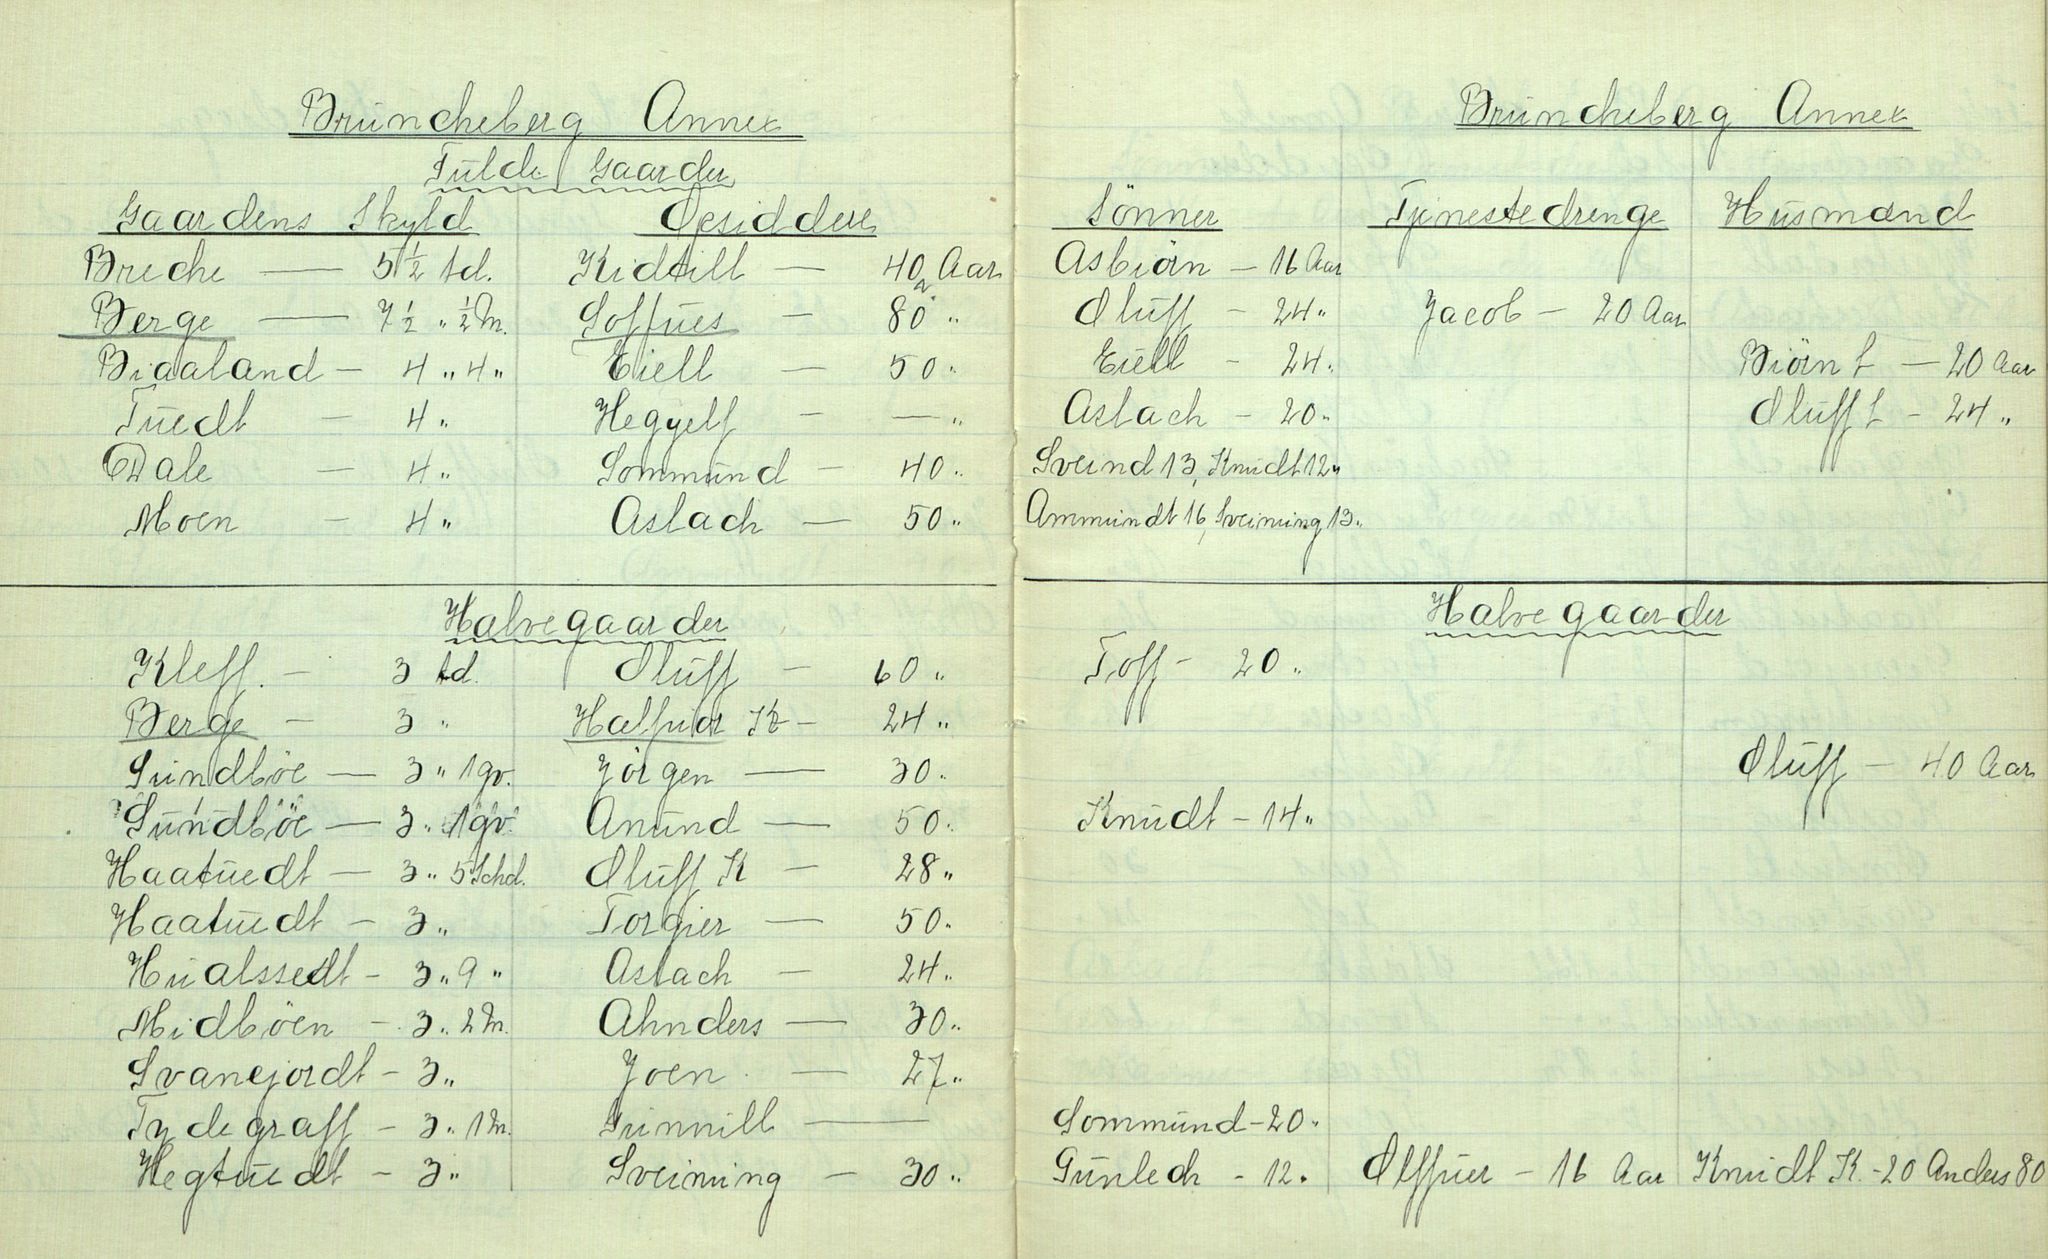 Brüncheberg Annex
Fulde Gaarder
Gaardens Skyld Opsiddere
Breche — 5½ td. Kidtill — 40 Aar
Berge — 7½ " ½ m. Soffues — 80 "
Biaaland — 4 " 4 " Eiell — 50 "
Tuedt — 4 " Heggelf — — "
Dale — 4 " Sommund — 40 "
Moen — 4 " Aslach — 50 "
Halvegaarder
Kleff. — 3 td. Oluff — 60 "
Berge — 3 " Halfuor K — 24 "
Sundböe — 3 " 1 gv. Jörgen — 30 "
Sundböe — 3 " 1 gv. Anund — 50 "
Haatuedt — 3 " 5 Schd. Oluff K — 28 "
Haatuedt — 3 " Torgier — 50 "
Hualssedt — 3 " 9 " Aslach — 24 "
Midböen — 3 " 2 m. Ahnders — 30 "
Svanejordt — 3 " Joen — 27 "
Tydegraff — 3 " 1 m. Gunnill —
Hegtuedt — 3 " Sveinung — 30 "
Brüncheberg Annex
Sönner Tjenestedrenge Husmænd
Asbiörn — 16 Aar
Oluff — 24 " Jacob — 20 Aar
Eiell — 24 " Biörn L — 20 Aar
Aslach — 20 " Oluff L — 24 "
Sveind 13, Knudt 12 "
Ammundt 16, Sveinung 13 "
Halvegaarder
Toff — 20 "
Oluff — 40 Aar
Knudt — 14 "
Sommund — 20 "
Gunlech — 12 " Olffuer — 16 Aar Knudt K. — 20 Anders 80